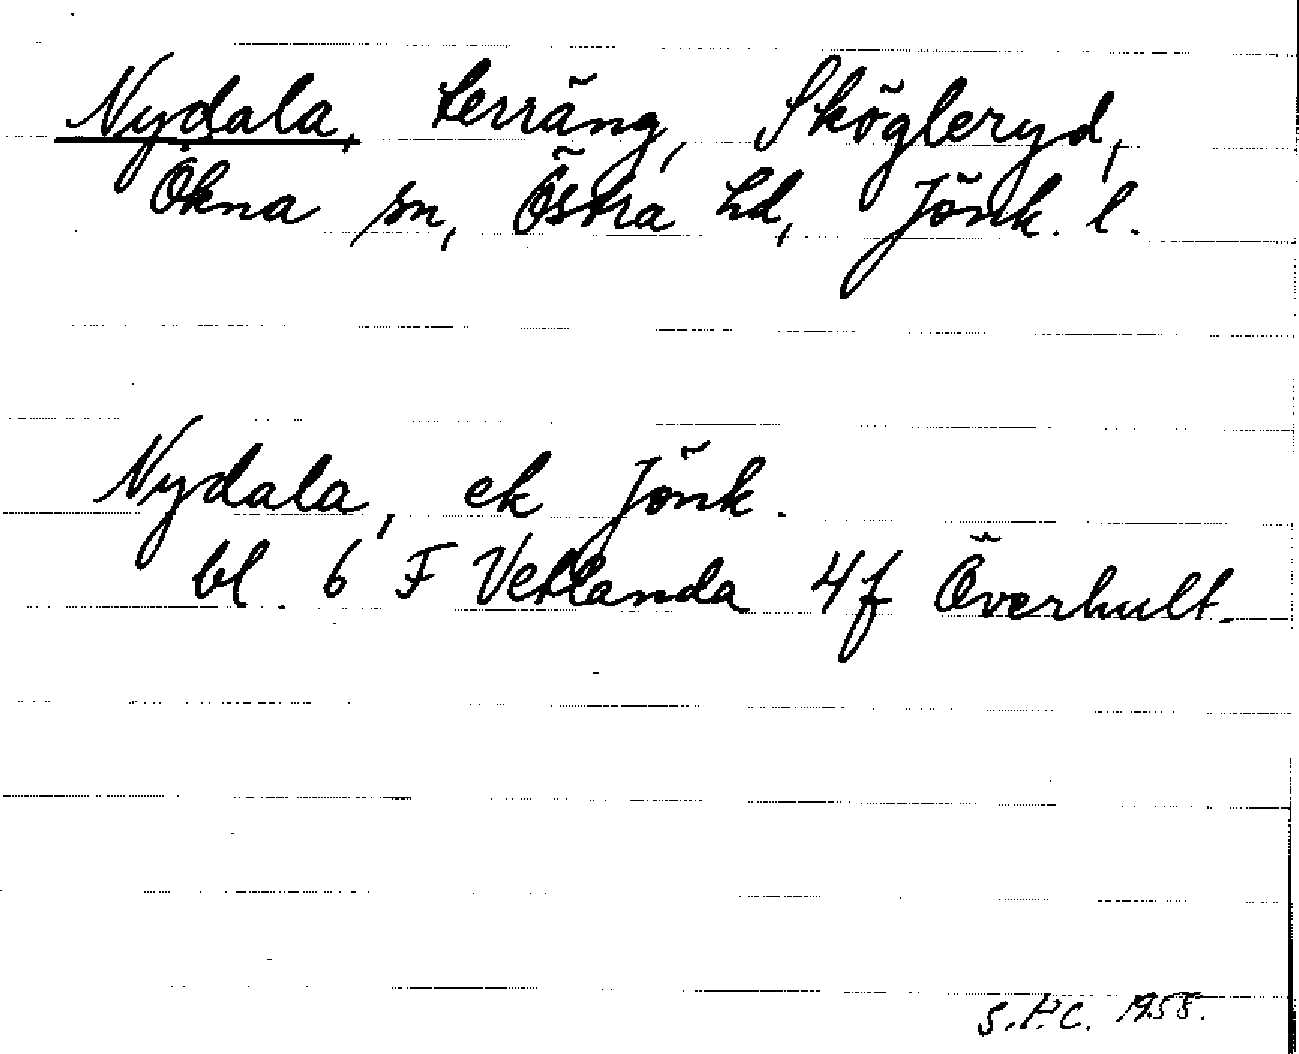 Nydala, terräng, Skögleryd,
Ökna sn, Östra hd, Jönk. l.
Nydala, ek Jönk.
bl. 6 F Vetlanda 4f Överhult.
S.P.C. 1958.